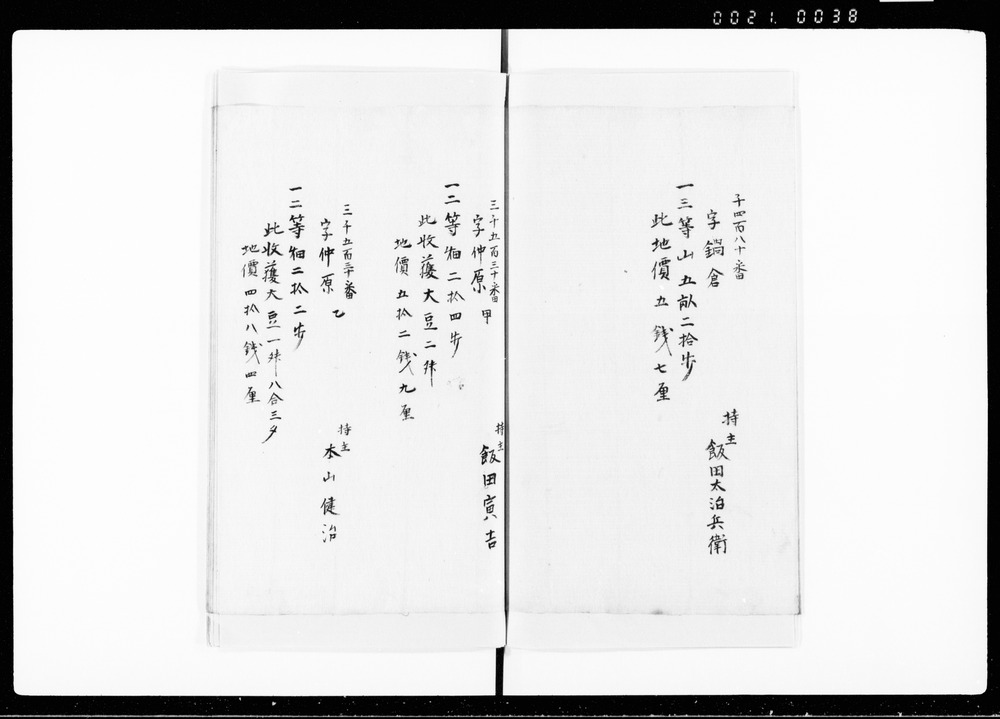 0021 0038
千四百八十番
字鍋倉
一三等山五畝二拾歩
此地價五銭七厘
持主
飯田太治兵衛
三千五百三十番 甲
字仲原
一二等畑二拾四歩
此收獲大豆二舛
地價五拾二銭九厘
持主
飯田寅吉
三千五百三十番 乙
字仲原
一二等畑二拾二歩
此收獲大豆一舛八合三夕
地價四拾八銭四厘
持主
本山健治